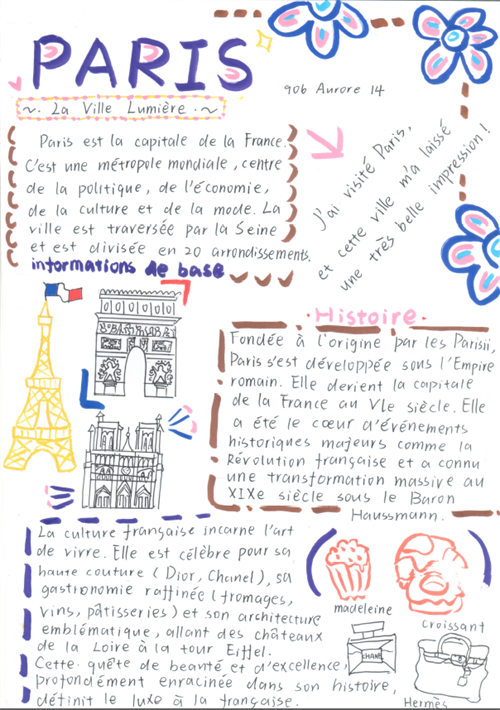 PARIS
~. La Ville Lumière .~
906 Aurore 14
Paris est la capitale de la France.
C'est une métropole mondiale, centre
de la politique, de l'économie,
de la culture et de la mode. La
ville est traversée par la Seine
et est divisée en 20 arrondissements.
informations de base
J'ai visité Paris,
et cette ville m'a laissé
une très belle impression !
Histoire
Fondée à l'origine par les Parisii,
Paris s'est développée sous l'Empire
romain. Elle devient la capitale
de la France au VIe siècle. Elle
a été le cœur d'événements
historiques majeurs comme la
Révolution française et a connu
une transformation massive au
XIXe siècle sous le Baron
Haussmann.
La culture française incarne l'art
de vivre. Elle est célèbre pour sa
haute couture (Dior, Chanel), sa
gastronomie raffinée (fromages,
vins, pâtisseries) et son architecture
emblématique, allant des châteaux
de la Loire à la tour Eiffel.
Cette quête de beauté et d'excellence,
profondément enracinée dans son histoire,
définit le luxe à la française.
madeleine
croissant
CHANEL
Hermès